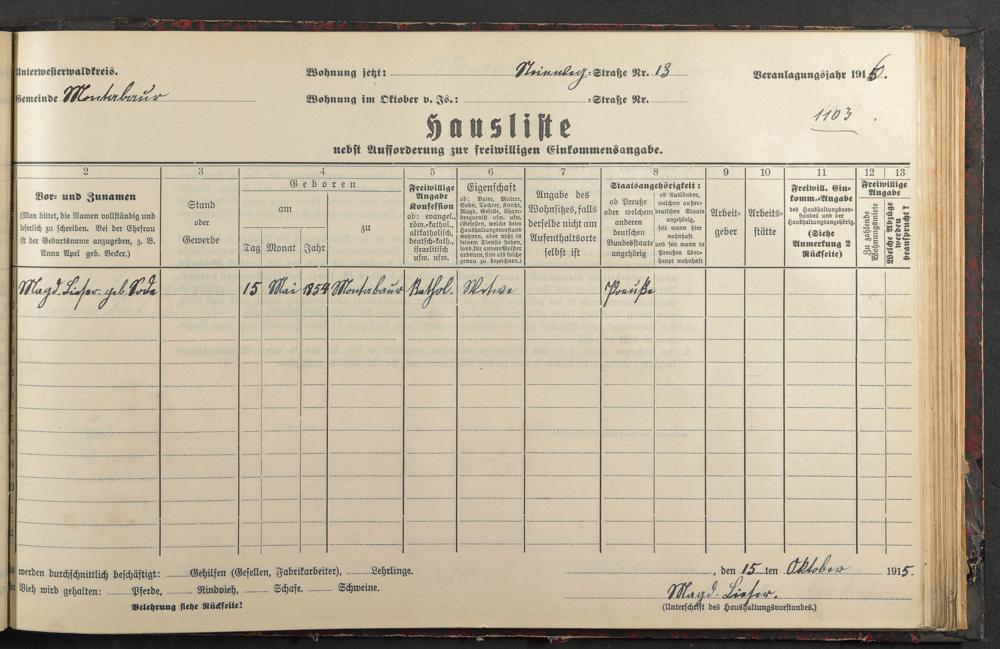 Unterwesterwaldkreis.
Wohnung jetzt: Steinweg-Straße Nr. 13
Veranlagungsjahr 1916.
Gemeinde Montabaur
Wohnung im Oktober v. Js.: -Straße Nr.
1103
Hausliste
nebst Aufforderung zur freiwilligen Einkommensangabe.
2 3 4 5 6 7 8 9 10 11 12 13
Vor- und Zunamen
(Man bittet, die Namen vollständig und
leserlich zu schreiben. Bei der Ehefrau
ist der Geburtsname anzugeben, z. B.
Anna Apel geb. Becker.)
Stand
oder
Gewerbe
Geboren
am
zu
Tag Monat Jahr
Freiwillige
Angabe
Konfession
ob: evangel.,
röm.-kathol.,
altkatholisch,
deutsch-kath.,
israelitisch
usw. usw.
Eigenschaft
ob: Vater, Mutter,
Sohn, Tochter, Knecht,
Magd, Geselle,
usw. usw.
Angabe des
Wohnsitzes, falls
derselbe nicht am
Aufenthaltsorte
selbst ist
Staatsangehörigkeit:
ob Preuße
oder welchem
anderen
deutschen
Bundesstaate
angehörig
ob Ausländer,
welchem außer-
deutschen Staate
angehörig,
seit wann hier
wohnhaft
und seit wann in
Preußen über-
haupt wohnhaft
Arbeit-
geber
Arbeits-
stätte
Freiwill. Ein-
komm.-Angabe
des Haushaltungsvor-
standes und der
Haushaltungsangehörig.
(Siehe
Anmerkung 2
Rückseite)
Freiwillige
Angabe
Zu zahlende
Wohnungsmiete
Welche Abzüge
werden
beansprucht?
Magd. Lieser geb. Sode 15 Mai 1854 Montabaur kathol. Witwe Preuße
werden durchschnittlich beschäftigt: Gehilfen (Gesellen, Fabrikarbeiter), Lehrlinge.
Vieh wird gehalten: Pferde, Rindvieh, Schafe. Schweine.
Belehrung siehe Rückseite!
, den 15 ten Oktober 1915.
Magd. Lieser.
(Unterschrift des Haushaltungsvorstandes.)